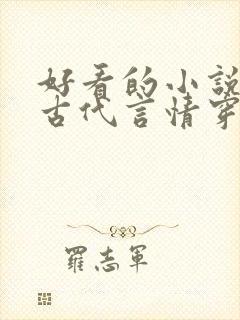 好看的小說
古代言情穿
羅志軍